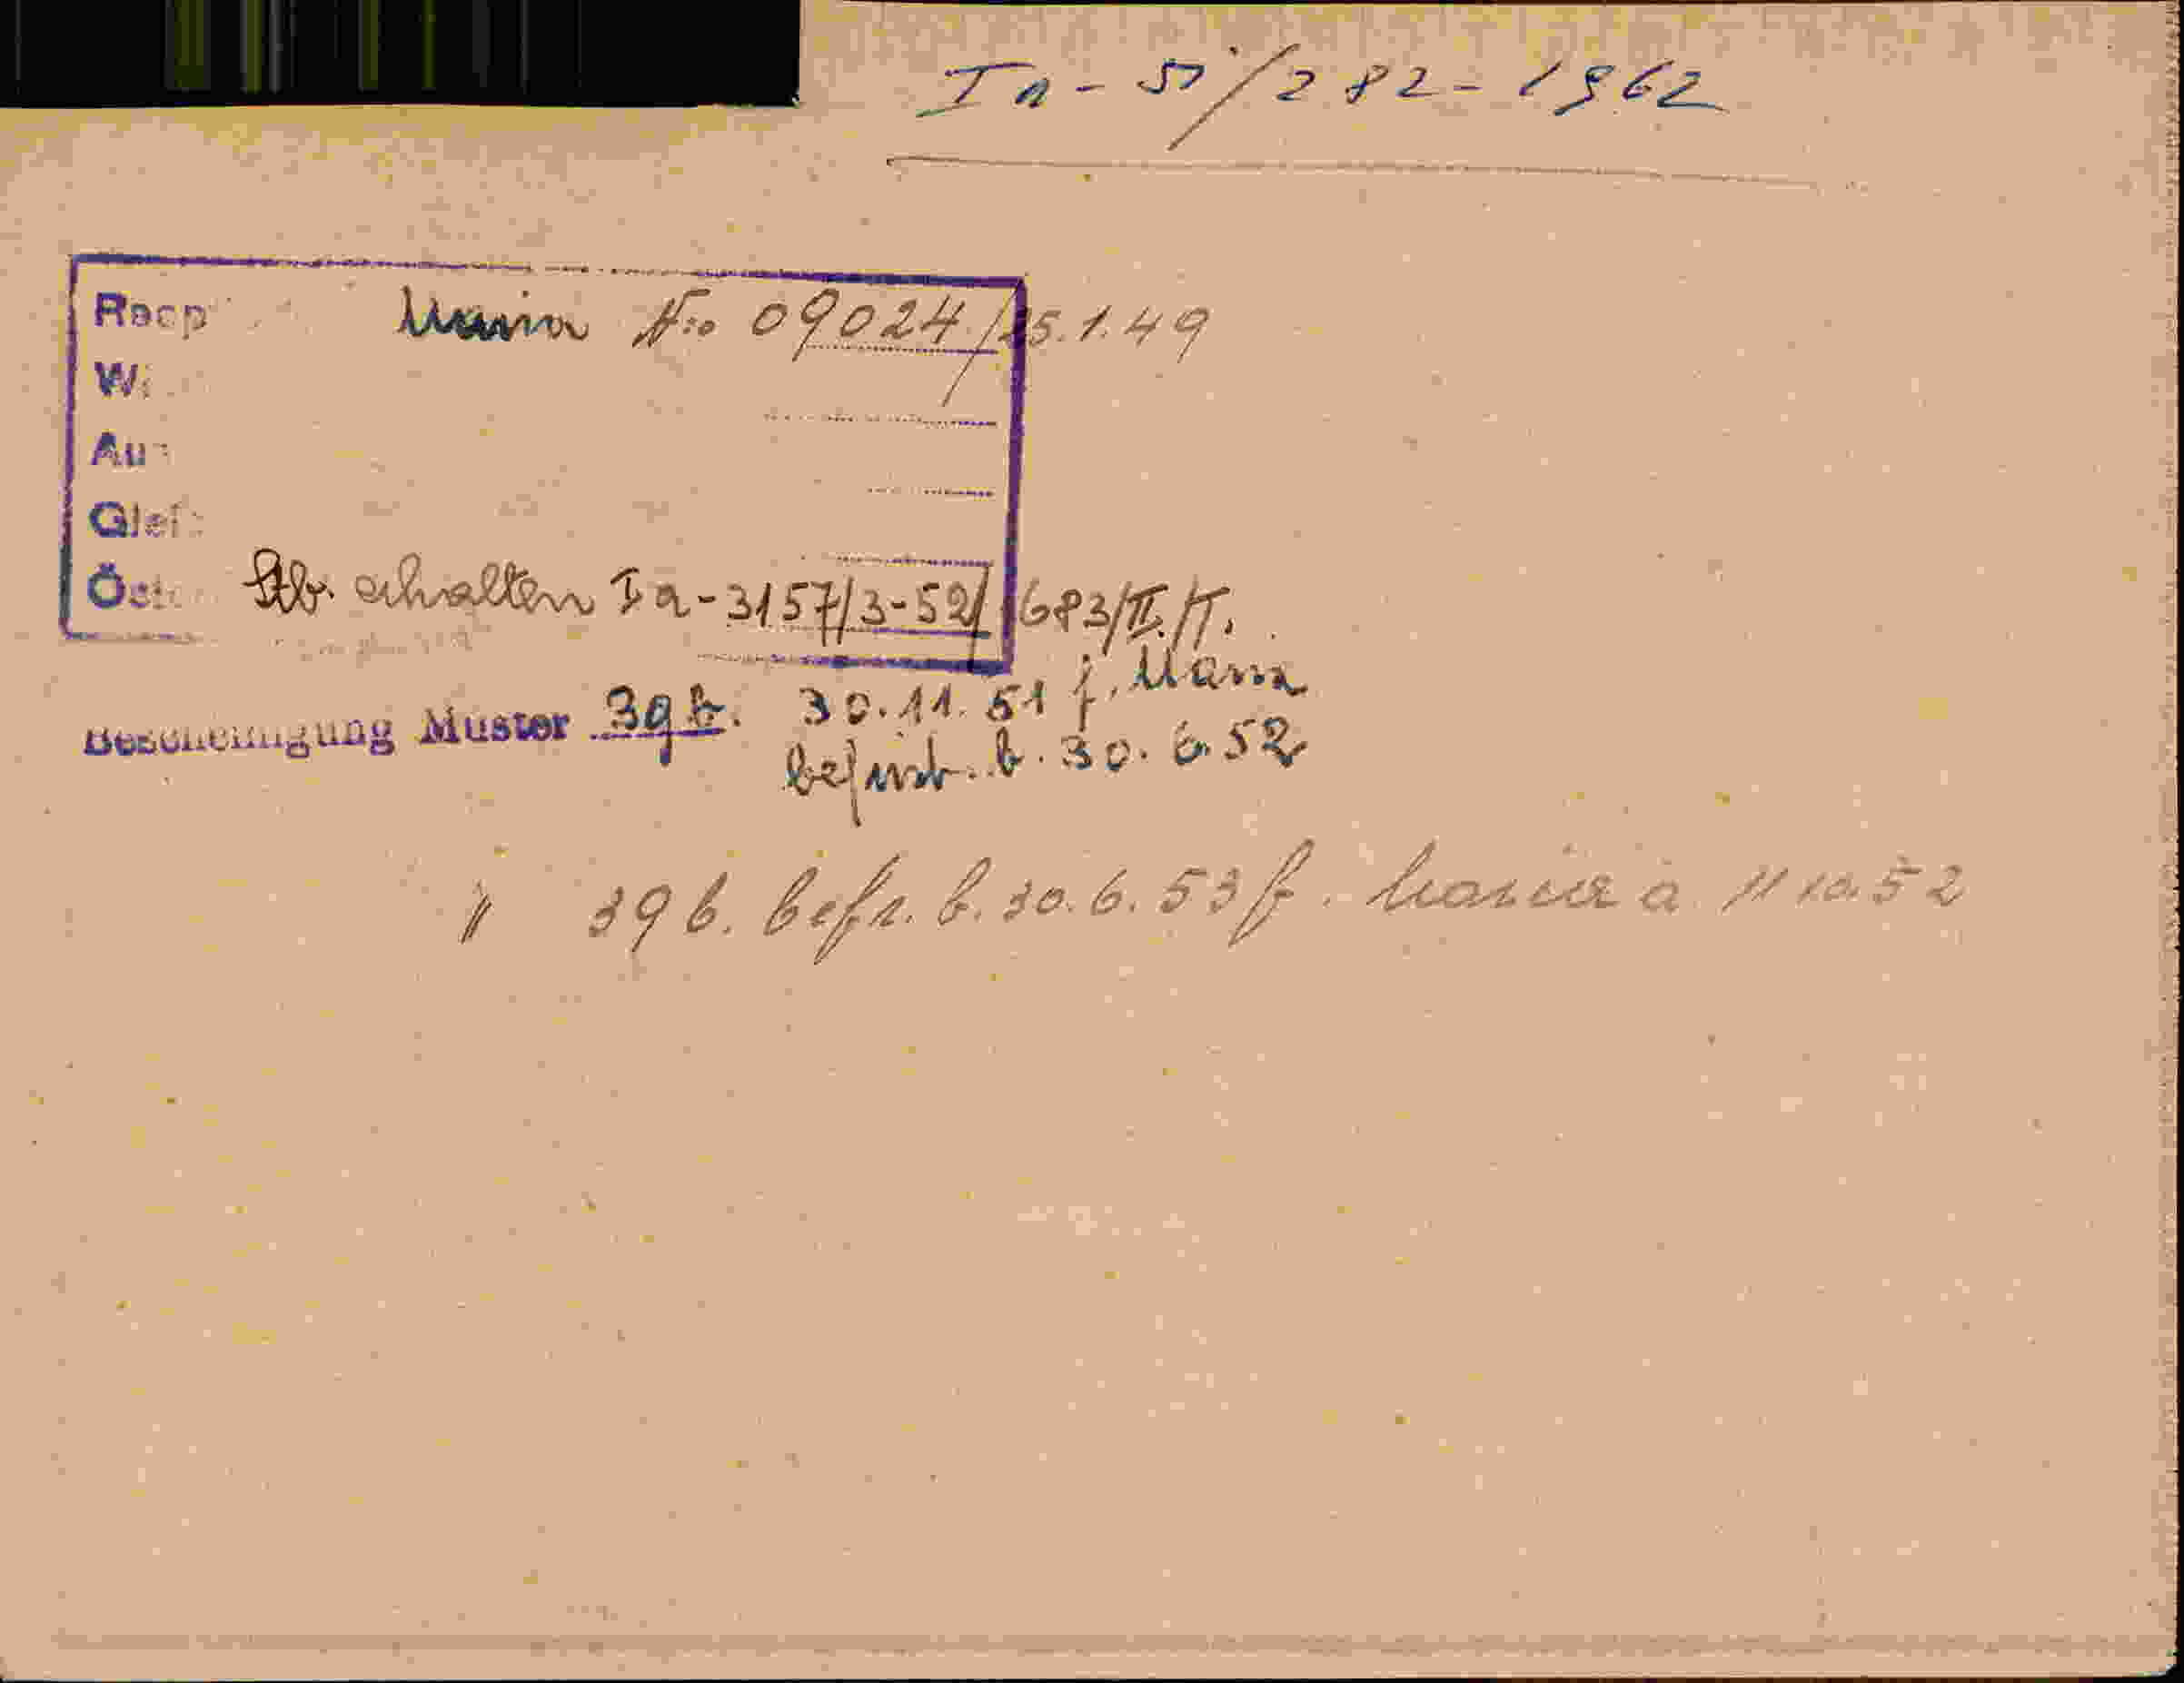 Ia - 51/282 - 1962
Maria No 09024/25.1.49
Stb. erhalten Ia-3157/3-52/1683/II./T.
Bescheinigung Muster 39 b. 30.11.51 f. Maria
befrist. b. 30. 6. 52
" 39 b. befr. b. 30. 6. 53 f. Maria a. 11 10. 52